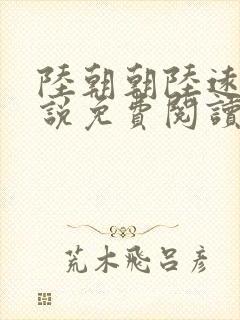 陸朝朝陸遠
說免費閱讀
荒木飛呂彥